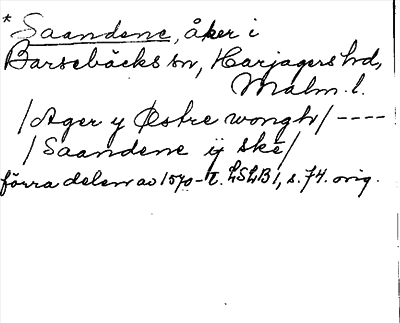 * Saandene, åker i
Barsebäcks sn, Harjagers hd,
Malm. l.
/Ager y Østre wongh/ ----
/Saandene ij ske/
förra delen av 1570-t. LSLB 1, s. 74. orig.